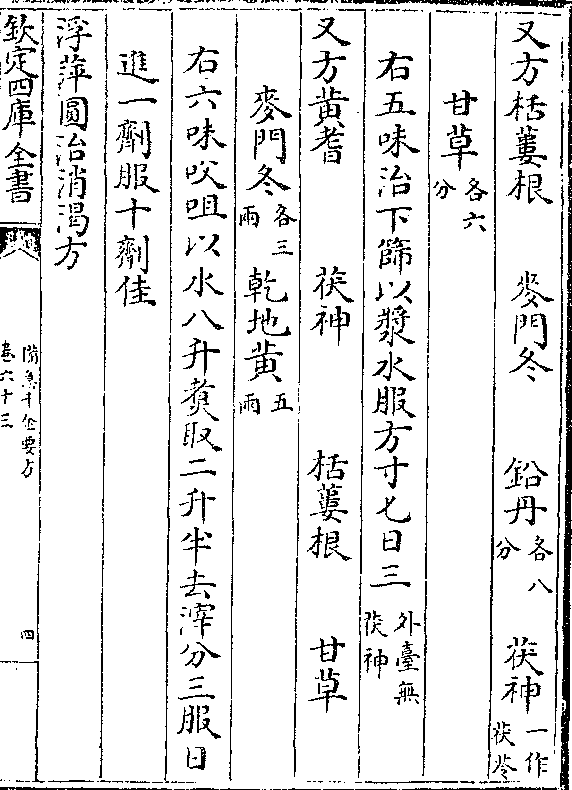 又方栝蔞根 麥門冬 鉛丹各八分 茯神一作茯苓
甘草各六分
右五味治下篩以漿水服方寸匕日三外臺無茯神
又方黄耆 茯神 栝蔞根 甘草
麥門冬各三兩 乾地黄五兩
右六味㕮咀以水八升煑取二升半去滓分三服日
進一劑服十劑佳
浮萍圓治消渴方
欽定四庫全書
備急千金要方
卷六十三
四